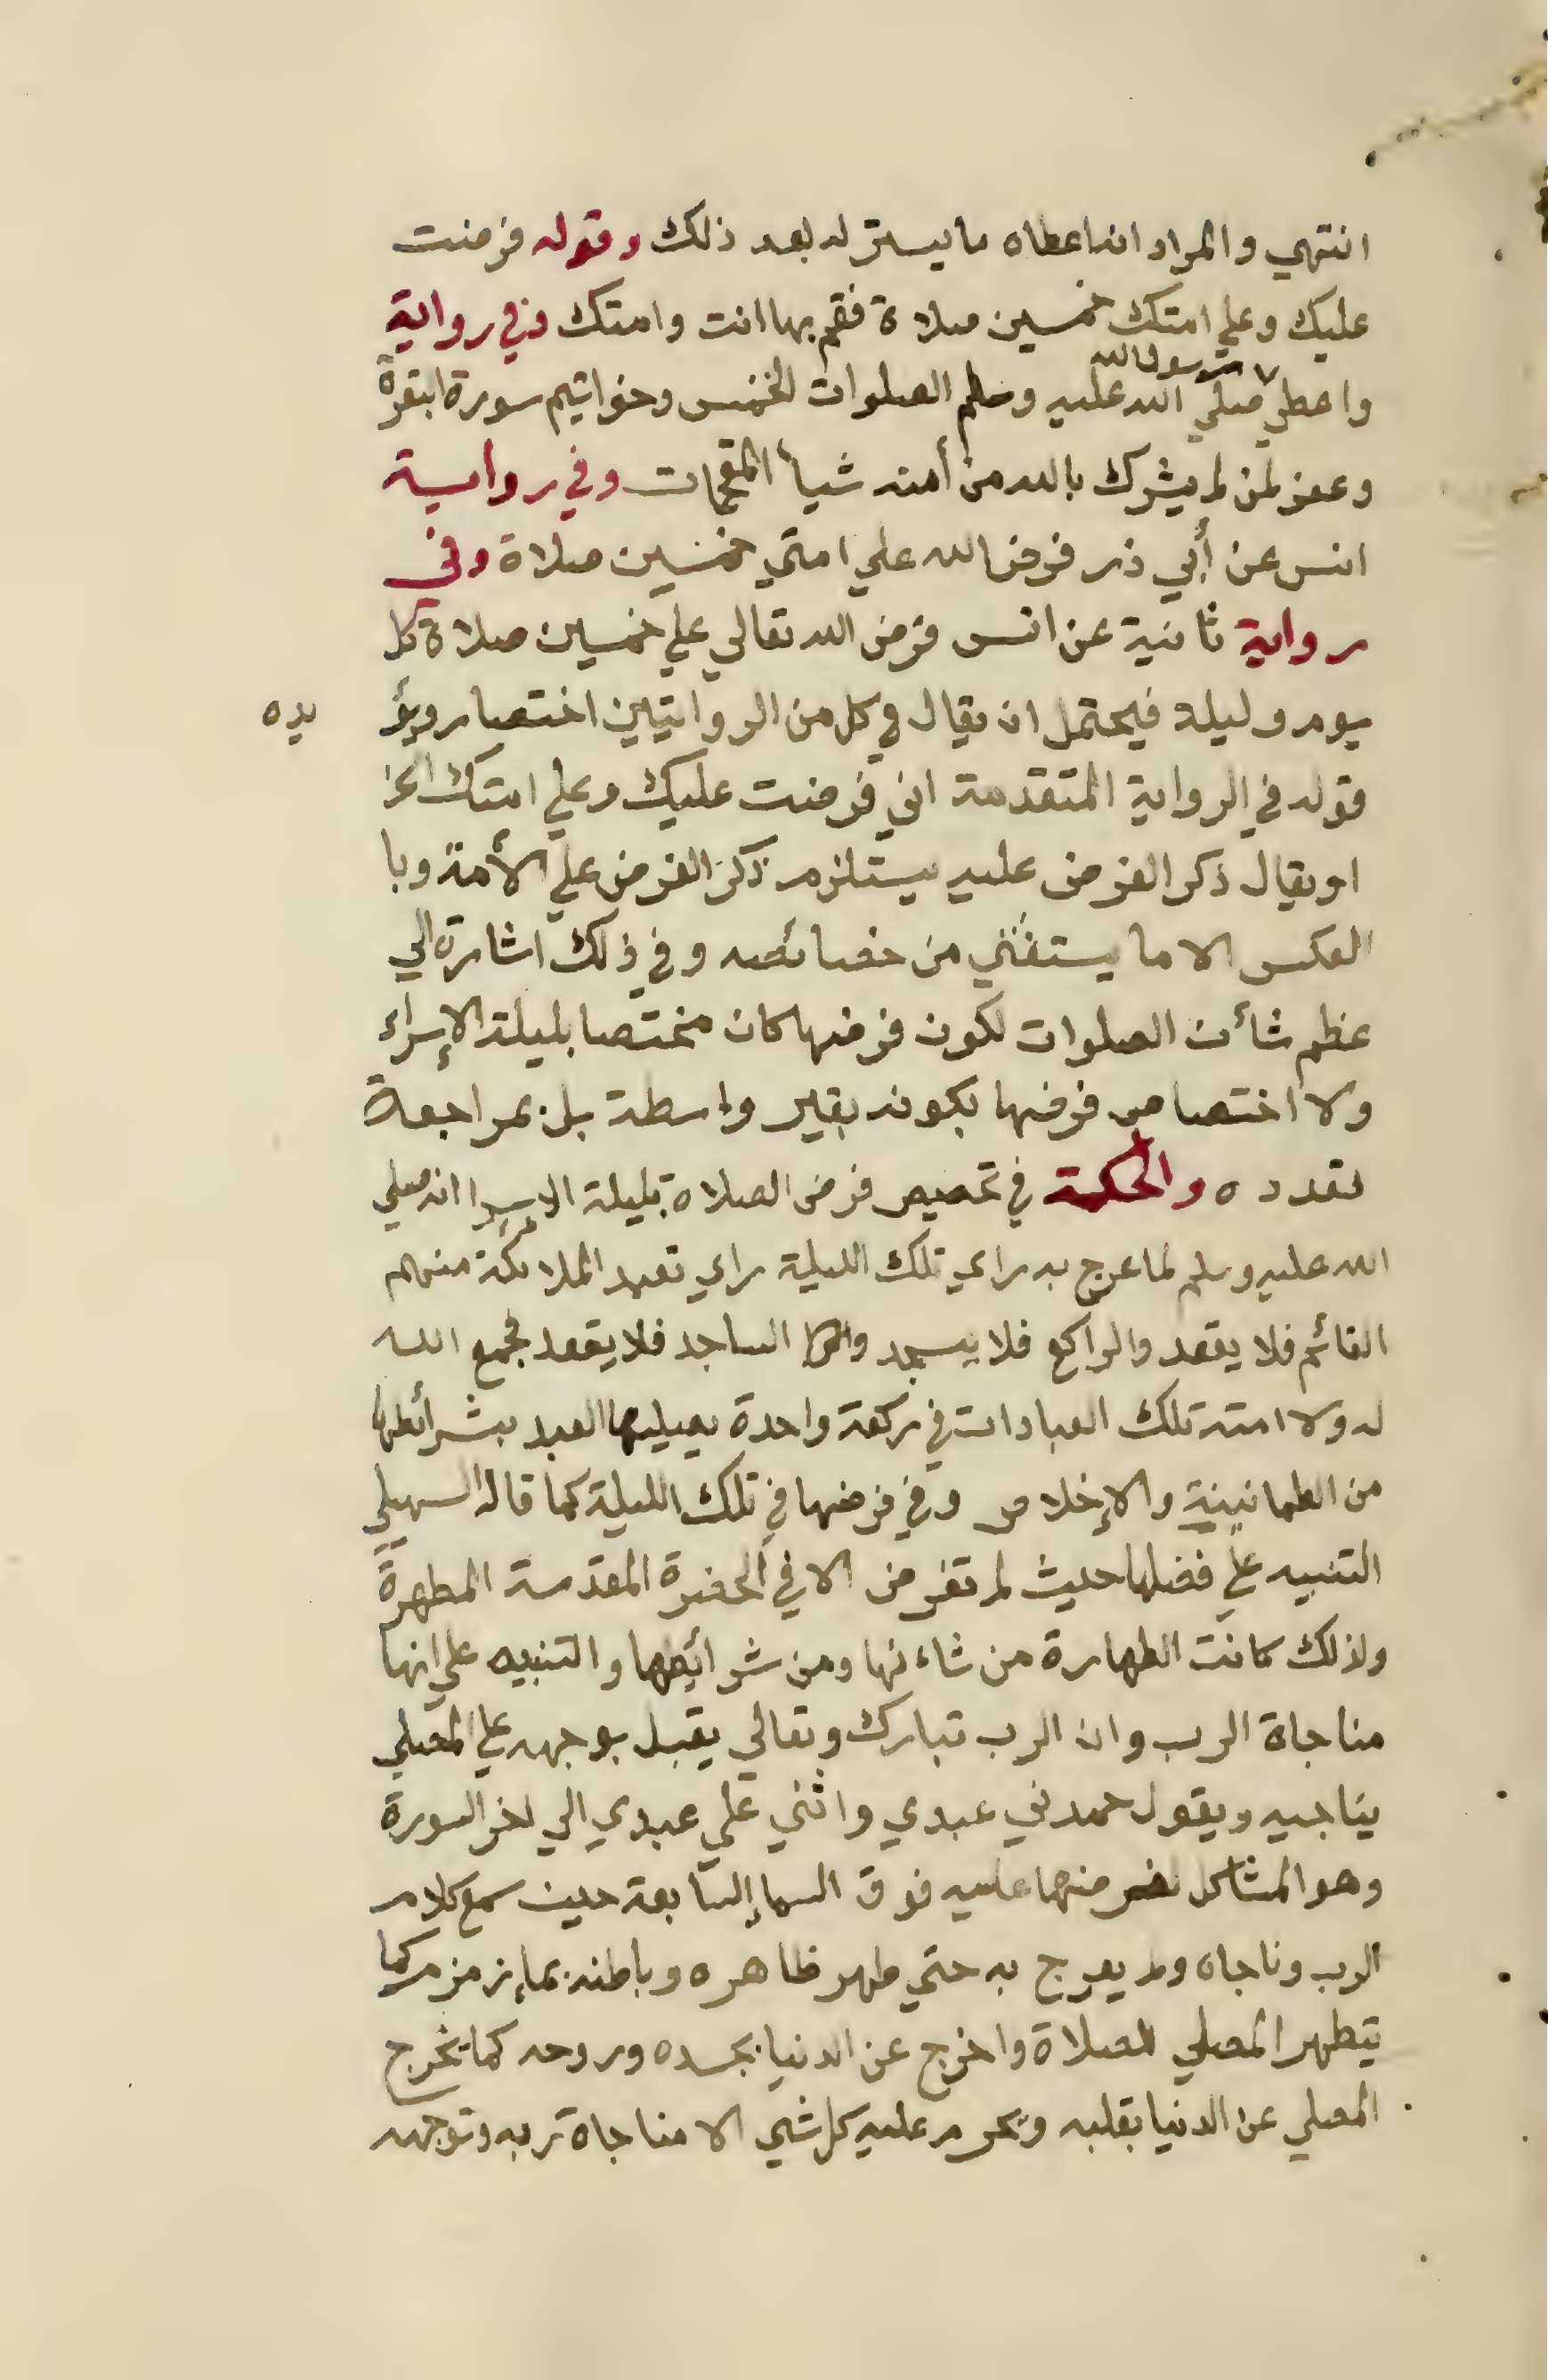 انتهي والمراد انه اعطاه ما يستر له بعد ذلك وقوله فرضت
عليك وعلي امتك خمسين صلاة فقم بها انت وامتك وفي رواية
واعطي رسول الله صلي الله عليه وسلم الصلوات الخمس وخواتيم سورة البقرة
وغفر لمن لم يشرك بالله من أمته شيأ المقحمات وفي رواية
انس عن أبي ذر فرض الله علي امتي خمسين صلاة وفى
رواية ثانية عن انس فرض الله تعالي علي خمسين صلاة كل
يوم وليلة فيحتمل ان يقال في كل من الروايتين اختصار ويؤ يده
قوله في الرواية المتقدمة اني فرضت عليك وعلي امتك الخ
او يقال ذكر الفرض عليه يستلزم ذكر الفرض علي الأمة وبا
العكس الا ما يستثني من خصائصه وفي ذلك اشارة الي
عظم شأن الصلوات لكون فرضها كان مختصا بليلة الإسراء
ولا اختصاص فرضها بكونه بغير واسطة بل بمراجعة
تعدده والحكمة في تخصيص فرض الصلاة بليلة الاسرا انه صلي
الله عليه وسلم لما عرج به راي تلك الليلة راي تعبد الملائكة منهم
القائم فلا يقعد والراكع فلا يسجد الساجد فلا يقعد فجمع الله
له ولا امته تلك العبادات في ركعة واحدة يصليها العبد بشرائطها
من الطمانينة والإخلاص وفي فرضها في تلك الليلة كما قاله السهيلي
التنبيه علي فضلها حيث لم تفرض الا في الحضرة المقدسة المطهرة
ولذلك كانت الطهارة من شاءنها ومن شرائطها والتنبيه علي انها
مناجاة الرب وان الرب تبارك وتعالي يقبل بوجهه علي المصلي
يناجيه ويقول حمدني عبدي واثني علي عبدي الي اخر السورة
وهو المشاكل لفرضها عليه فوق السماء السابعة حيث سمع كلام
الرب وناجاه ولم يعرج به حتي طهر ظاهره وباطنه بماء زمزم كما
يتطهر المصلي للصلاة واخرج عن الدنيا بجسده وروحه كما يخرج
المصلي عن الدنيا بقلبه ويحرم عليه كل شي الا مناجاة ربه وتوجهه